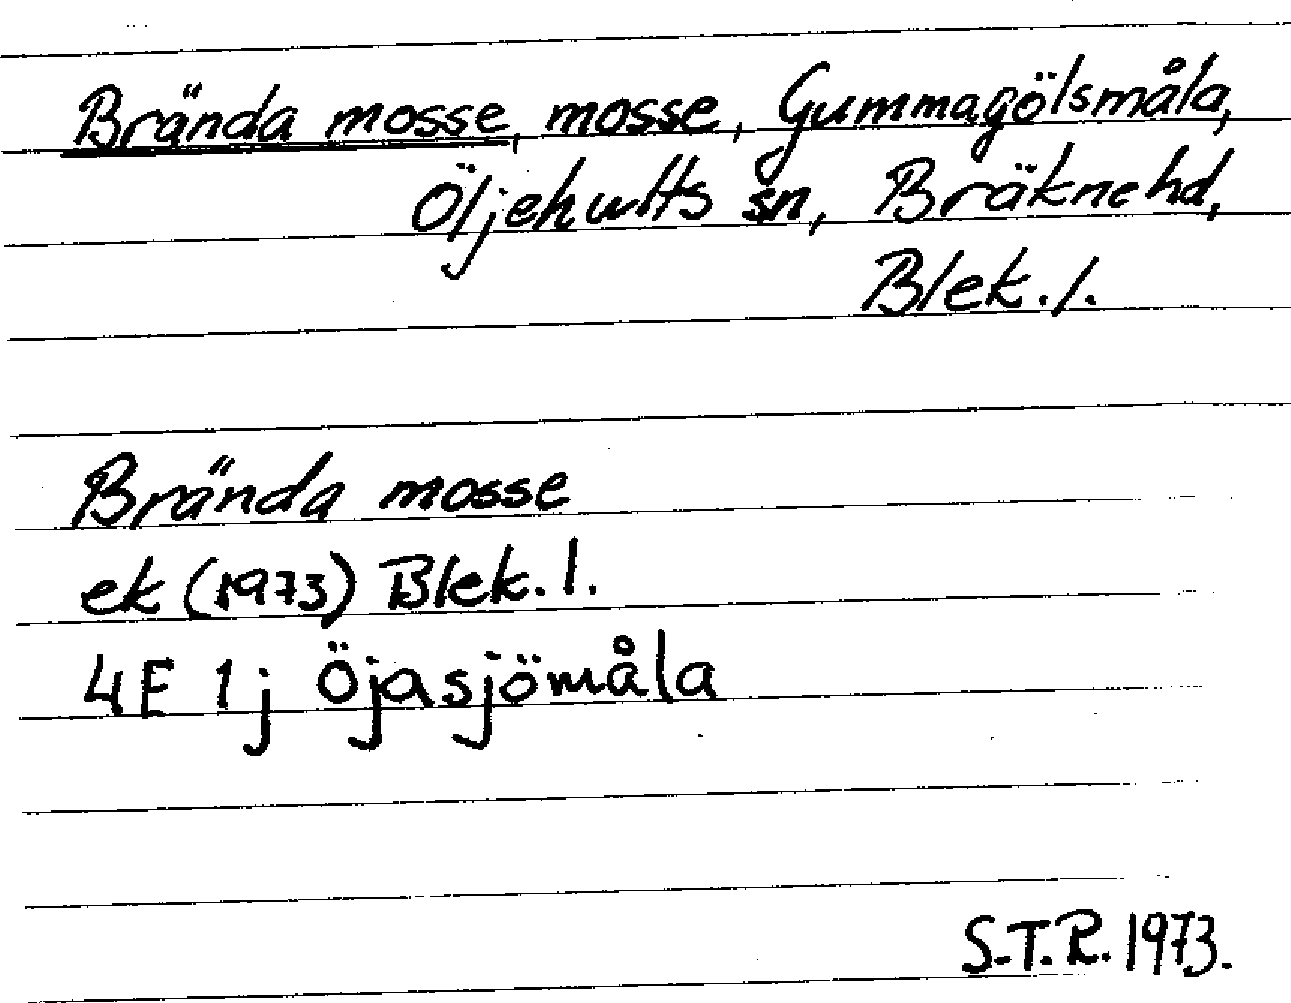 Brända mosse, mosse, Gummagölsmåla,
Öljehults sn, Bräkne hd,
Blek. l.
Brända mosse
ek (1973) Blek. l.
4E 1j Öjasjömåla
S.T.R. 1973.